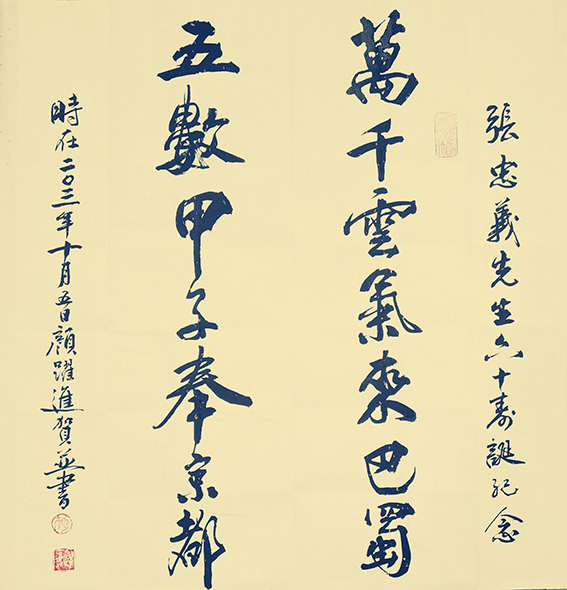 張忠義先生六十壽誕紀念
萬千雲氣來巴蜀
五數甲子奉京都
時在二〇三年十月五日顏躍進賀並書